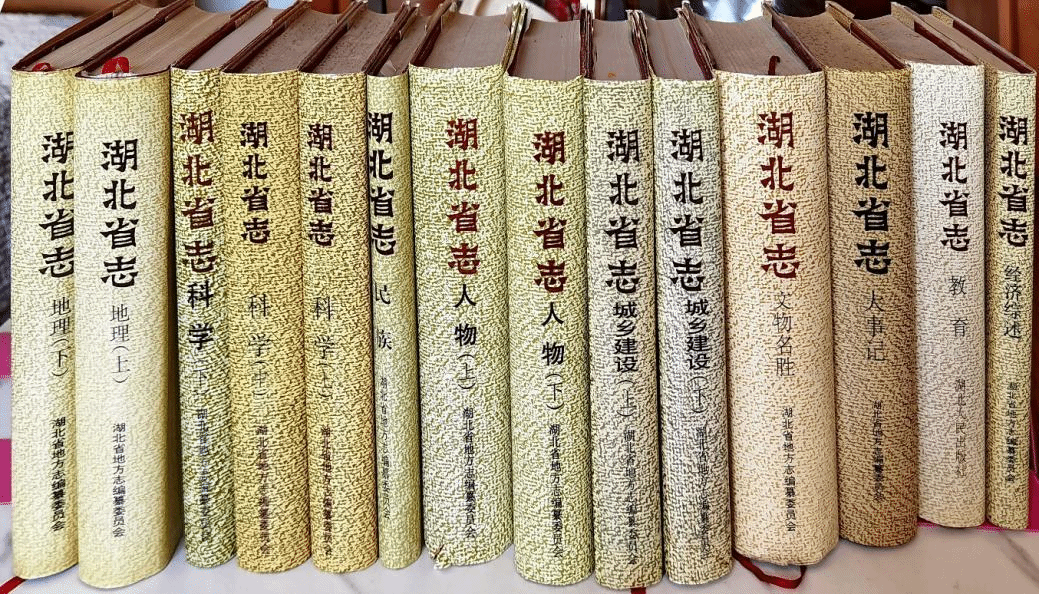 湖北省志
地理(下)
湖北省地方志编纂委员会
湖北省志
地理(上)
湖北省地方志编纂委员会
湖北省志
科学(下)
湖北省地方志编纂委员会
湖北省志
科学(中)
湖北省地方志编纂委员会
湖北省志
科学(上)
湖北省地方志编纂委员会
湖北省志
民族
湖北省地方志编纂委员会
湖北省志
人物(上)
湖北省地方志编纂委员会
湖北省志
人物(下)
湖北省地方志编纂委员会
湖北省志
城乡建设(上)
湖北省地方志编纂委员会
湖北省志
城乡建设(下)
湖北省地方志编纂委员会
湖北省志
文物名胜
湖北省地方志编纂委员会
湖北省志
大事记
湖北省地方志编纂委员会
湖北省志
教育
湖北人民出版社
湖北省志
经济综述
湖北省地方志编纂委员会